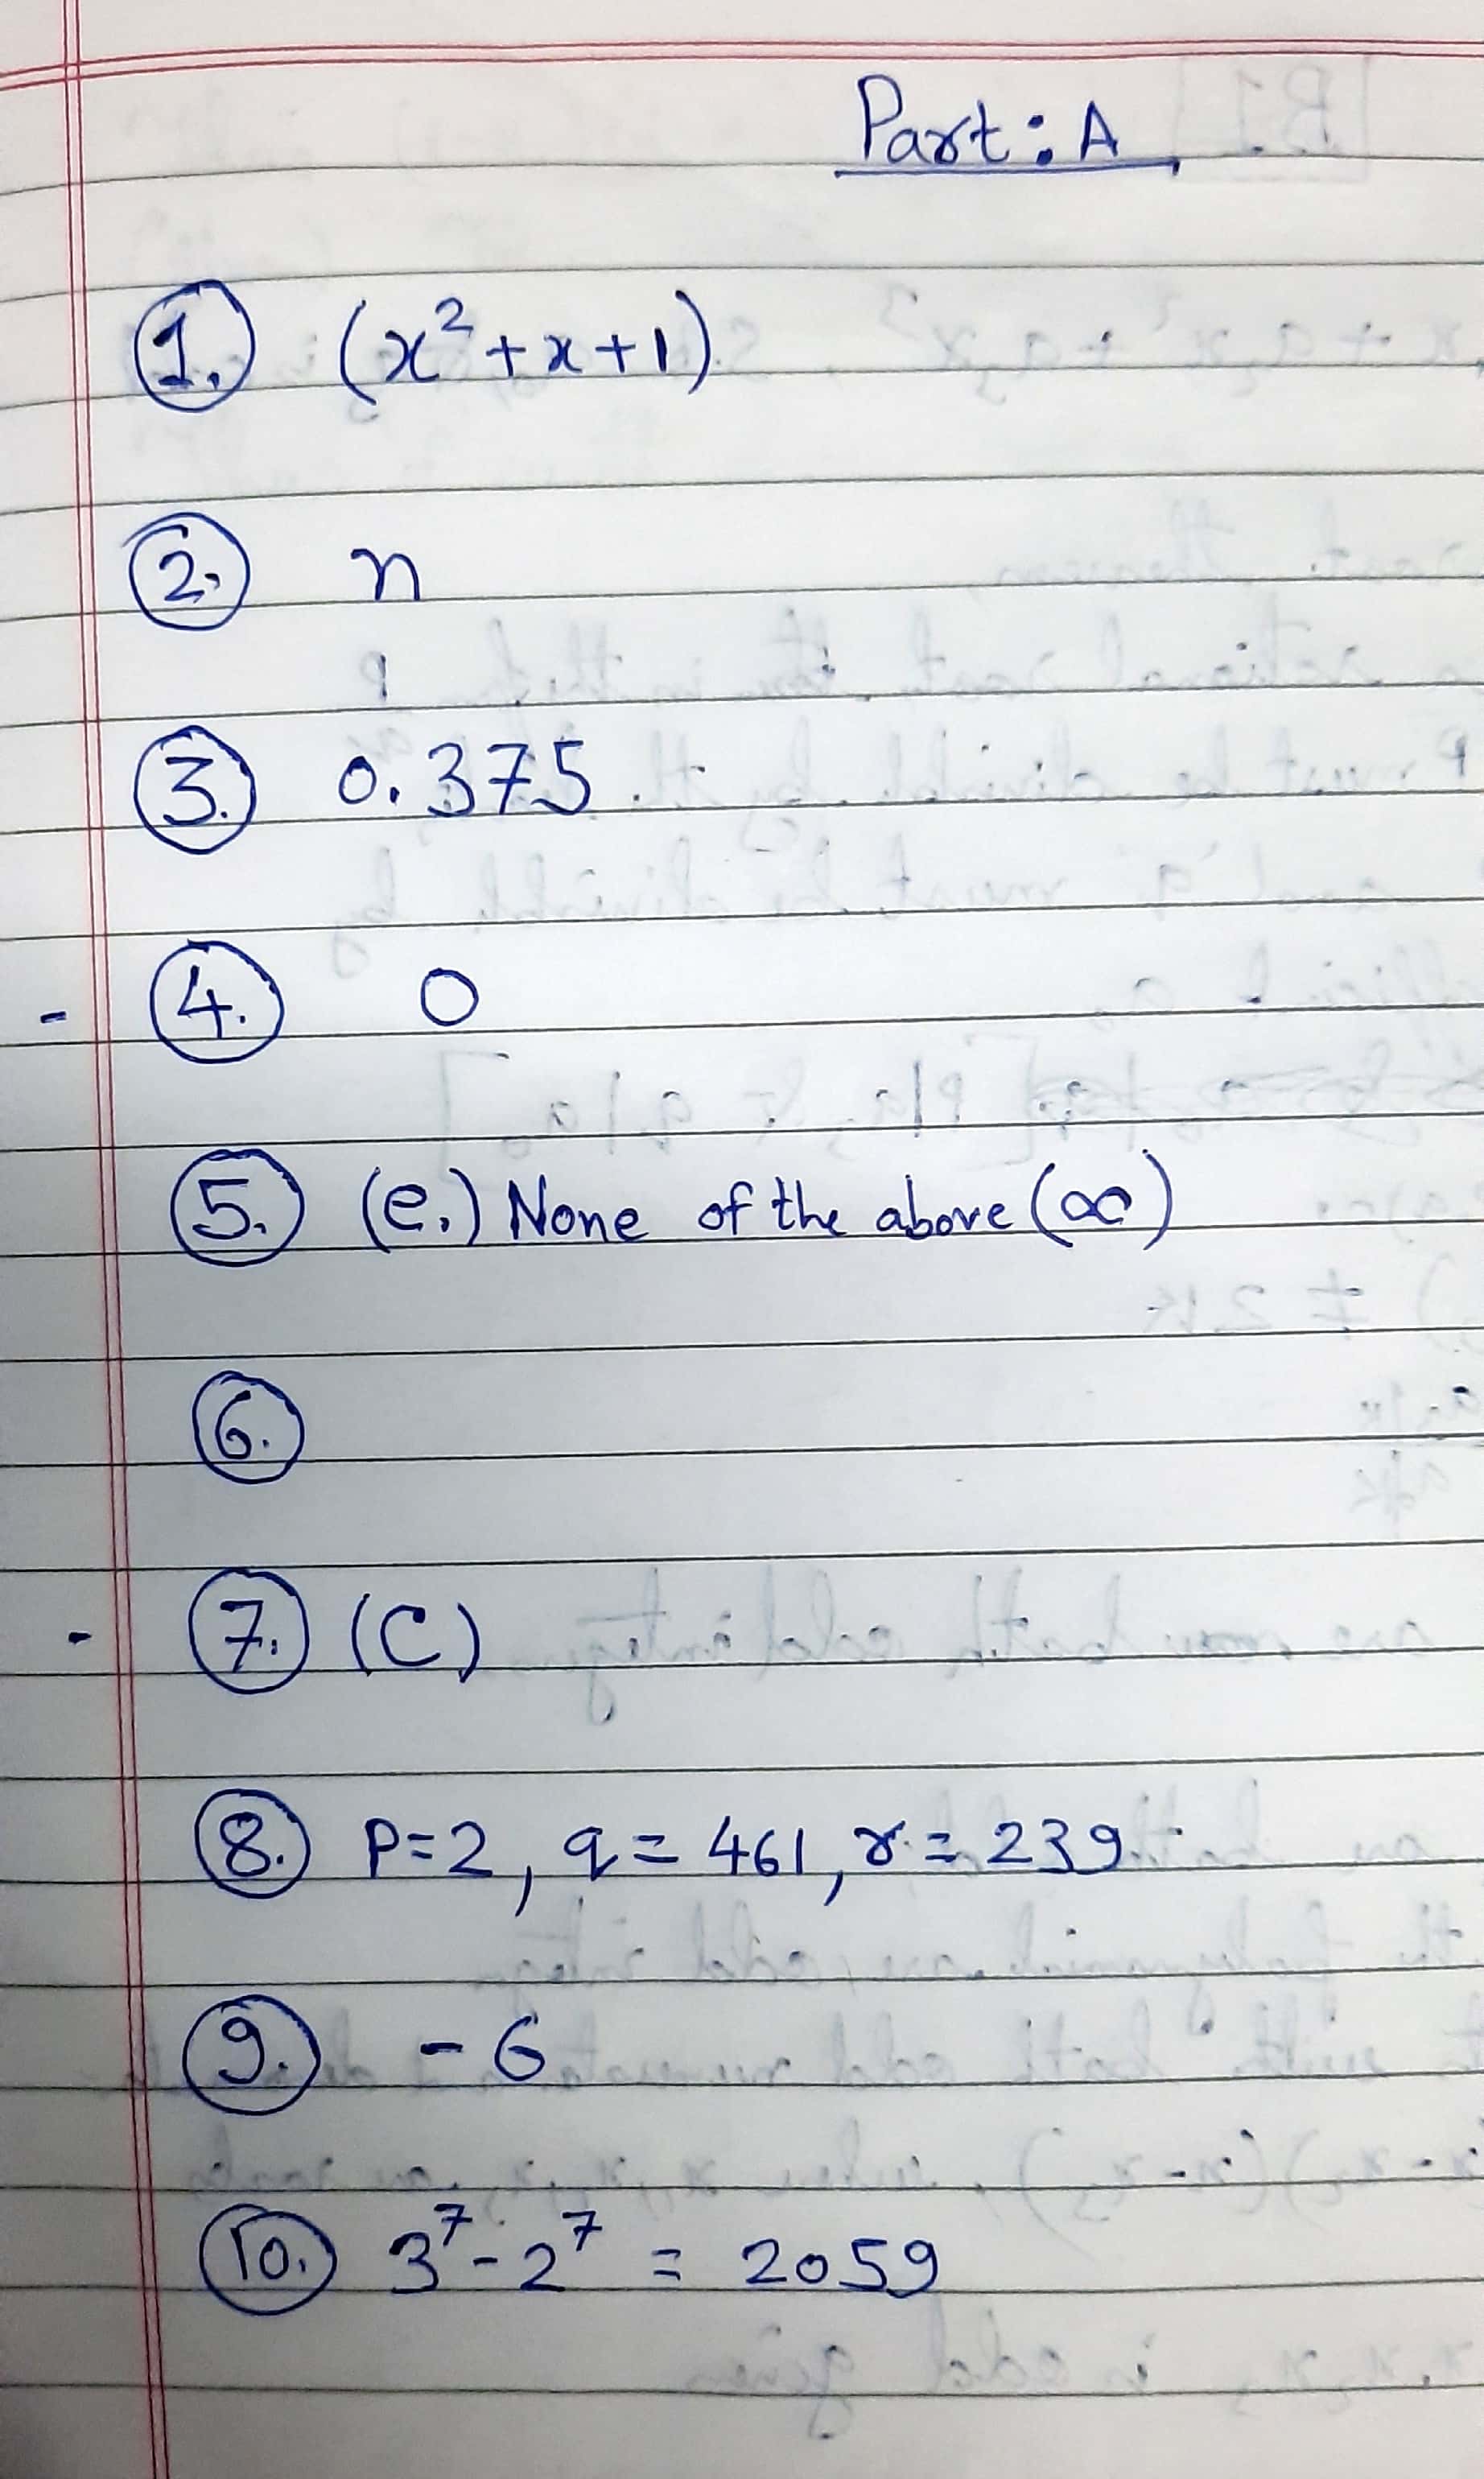 Part : A
1. (x² + x + 1)
2. n
3. 0.375
- 4. 0
5. (e.) None of the above (∞)
6.
- 7. (C)
8. P=2, q = 461, r = 239
9. - 6
10. 3⁷ - 2⁷ = 2059